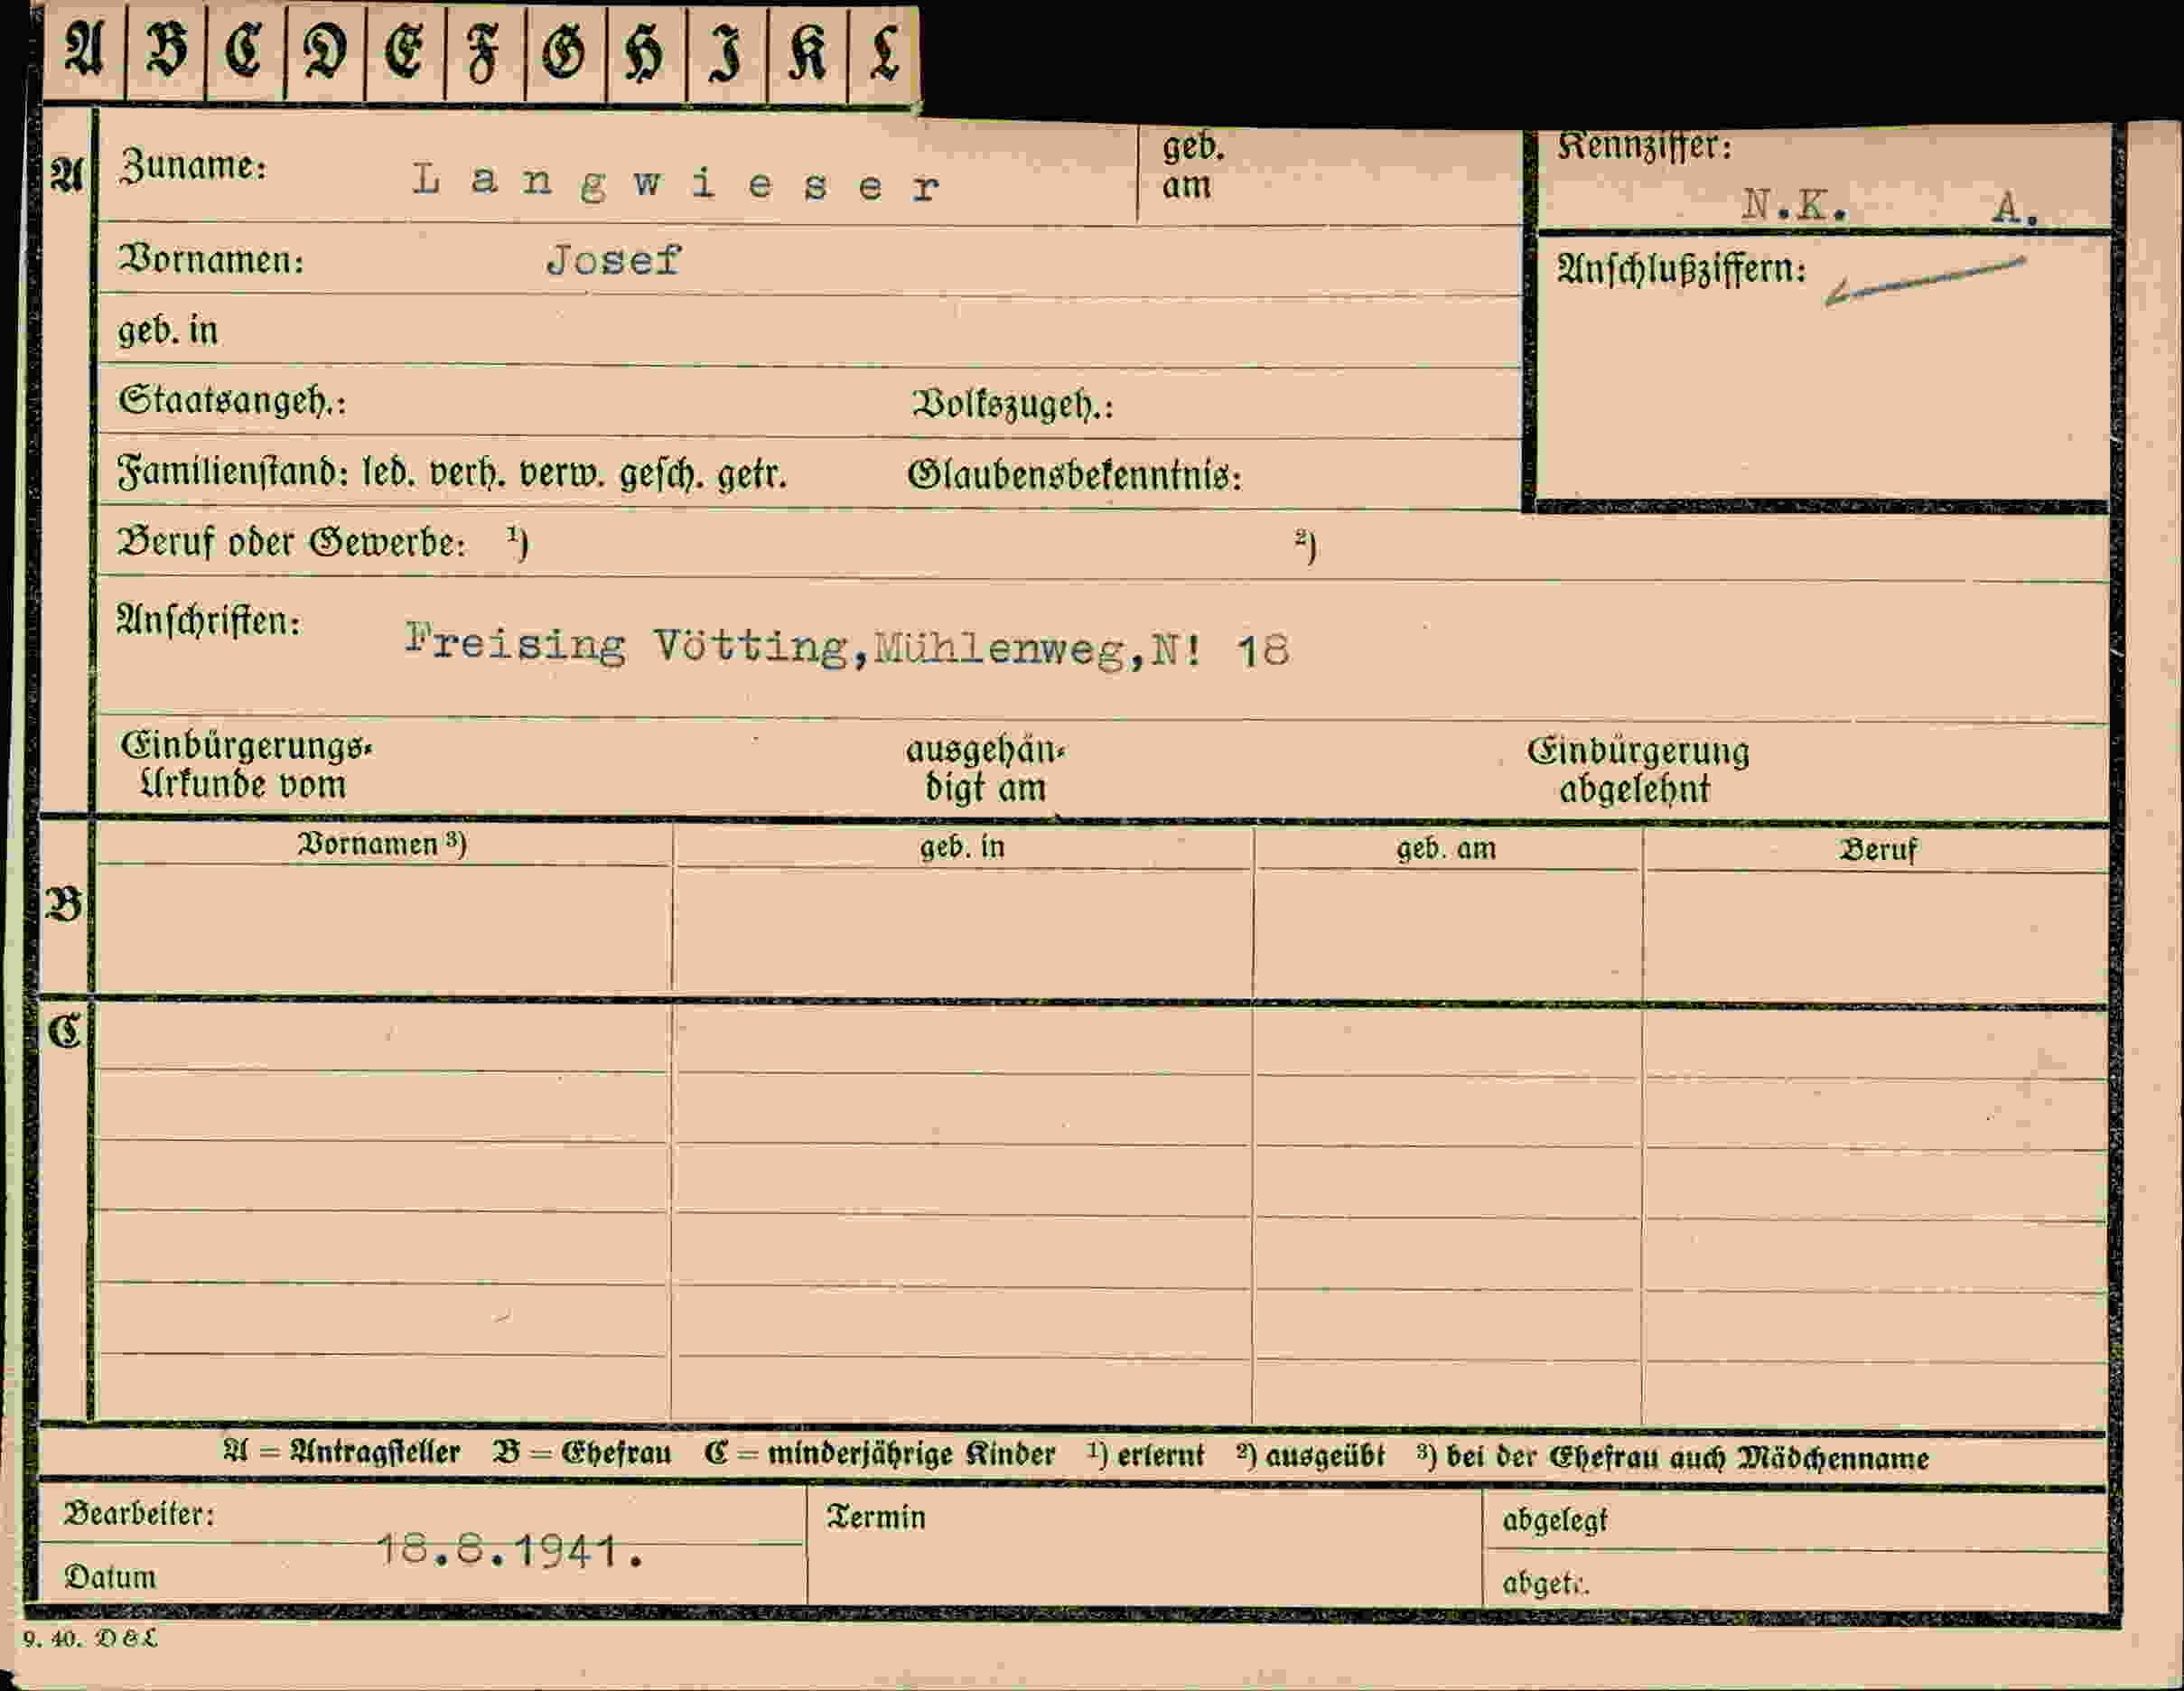 A B C D E F G H I K L
A Zuname: Langwieser geb. am
Kennziffer: N.K. A.
Vornamen: Josef
Anschlußziffern:
geb. in
Staatsangeh.: Volkszugeh.:
Familienstand: led. verh. verw. gesch. getr. Glaubensbekenntnis:
Beruf oder Gewerbe: ¹) ²)
Anschriften: Freising Vötting,Mühlenweg,N! 18
Einbürgerungs- ausgehän- Einbürgerung
Urkunde vom digt am abgelehnt
Vornamen ³) geb. in geb. am Beruf
B
C
A = Antragsteller B = Ehefrau C = minderjährige Kinder ¹) erlernt ²) ausgeübt ³) bei der Ehefrau auch Mädchenname
Bearbeiter: Termin abgelegt
18.8.1941.
Datum abgetr.
9. 40. D & L